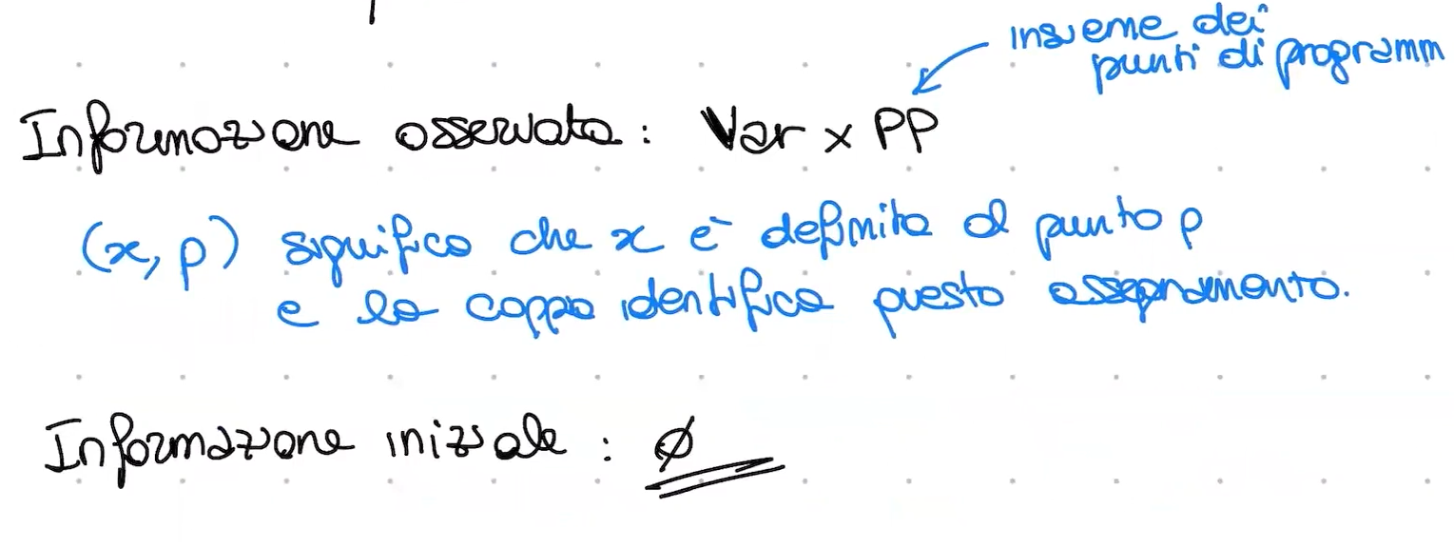 insieme dei
punti di programm
Informazione osservata: Var x PP
(x, p) significa che x è definita al punto p
e la coppia identifica questo assegnamento.
Informazione iniziale: ∅